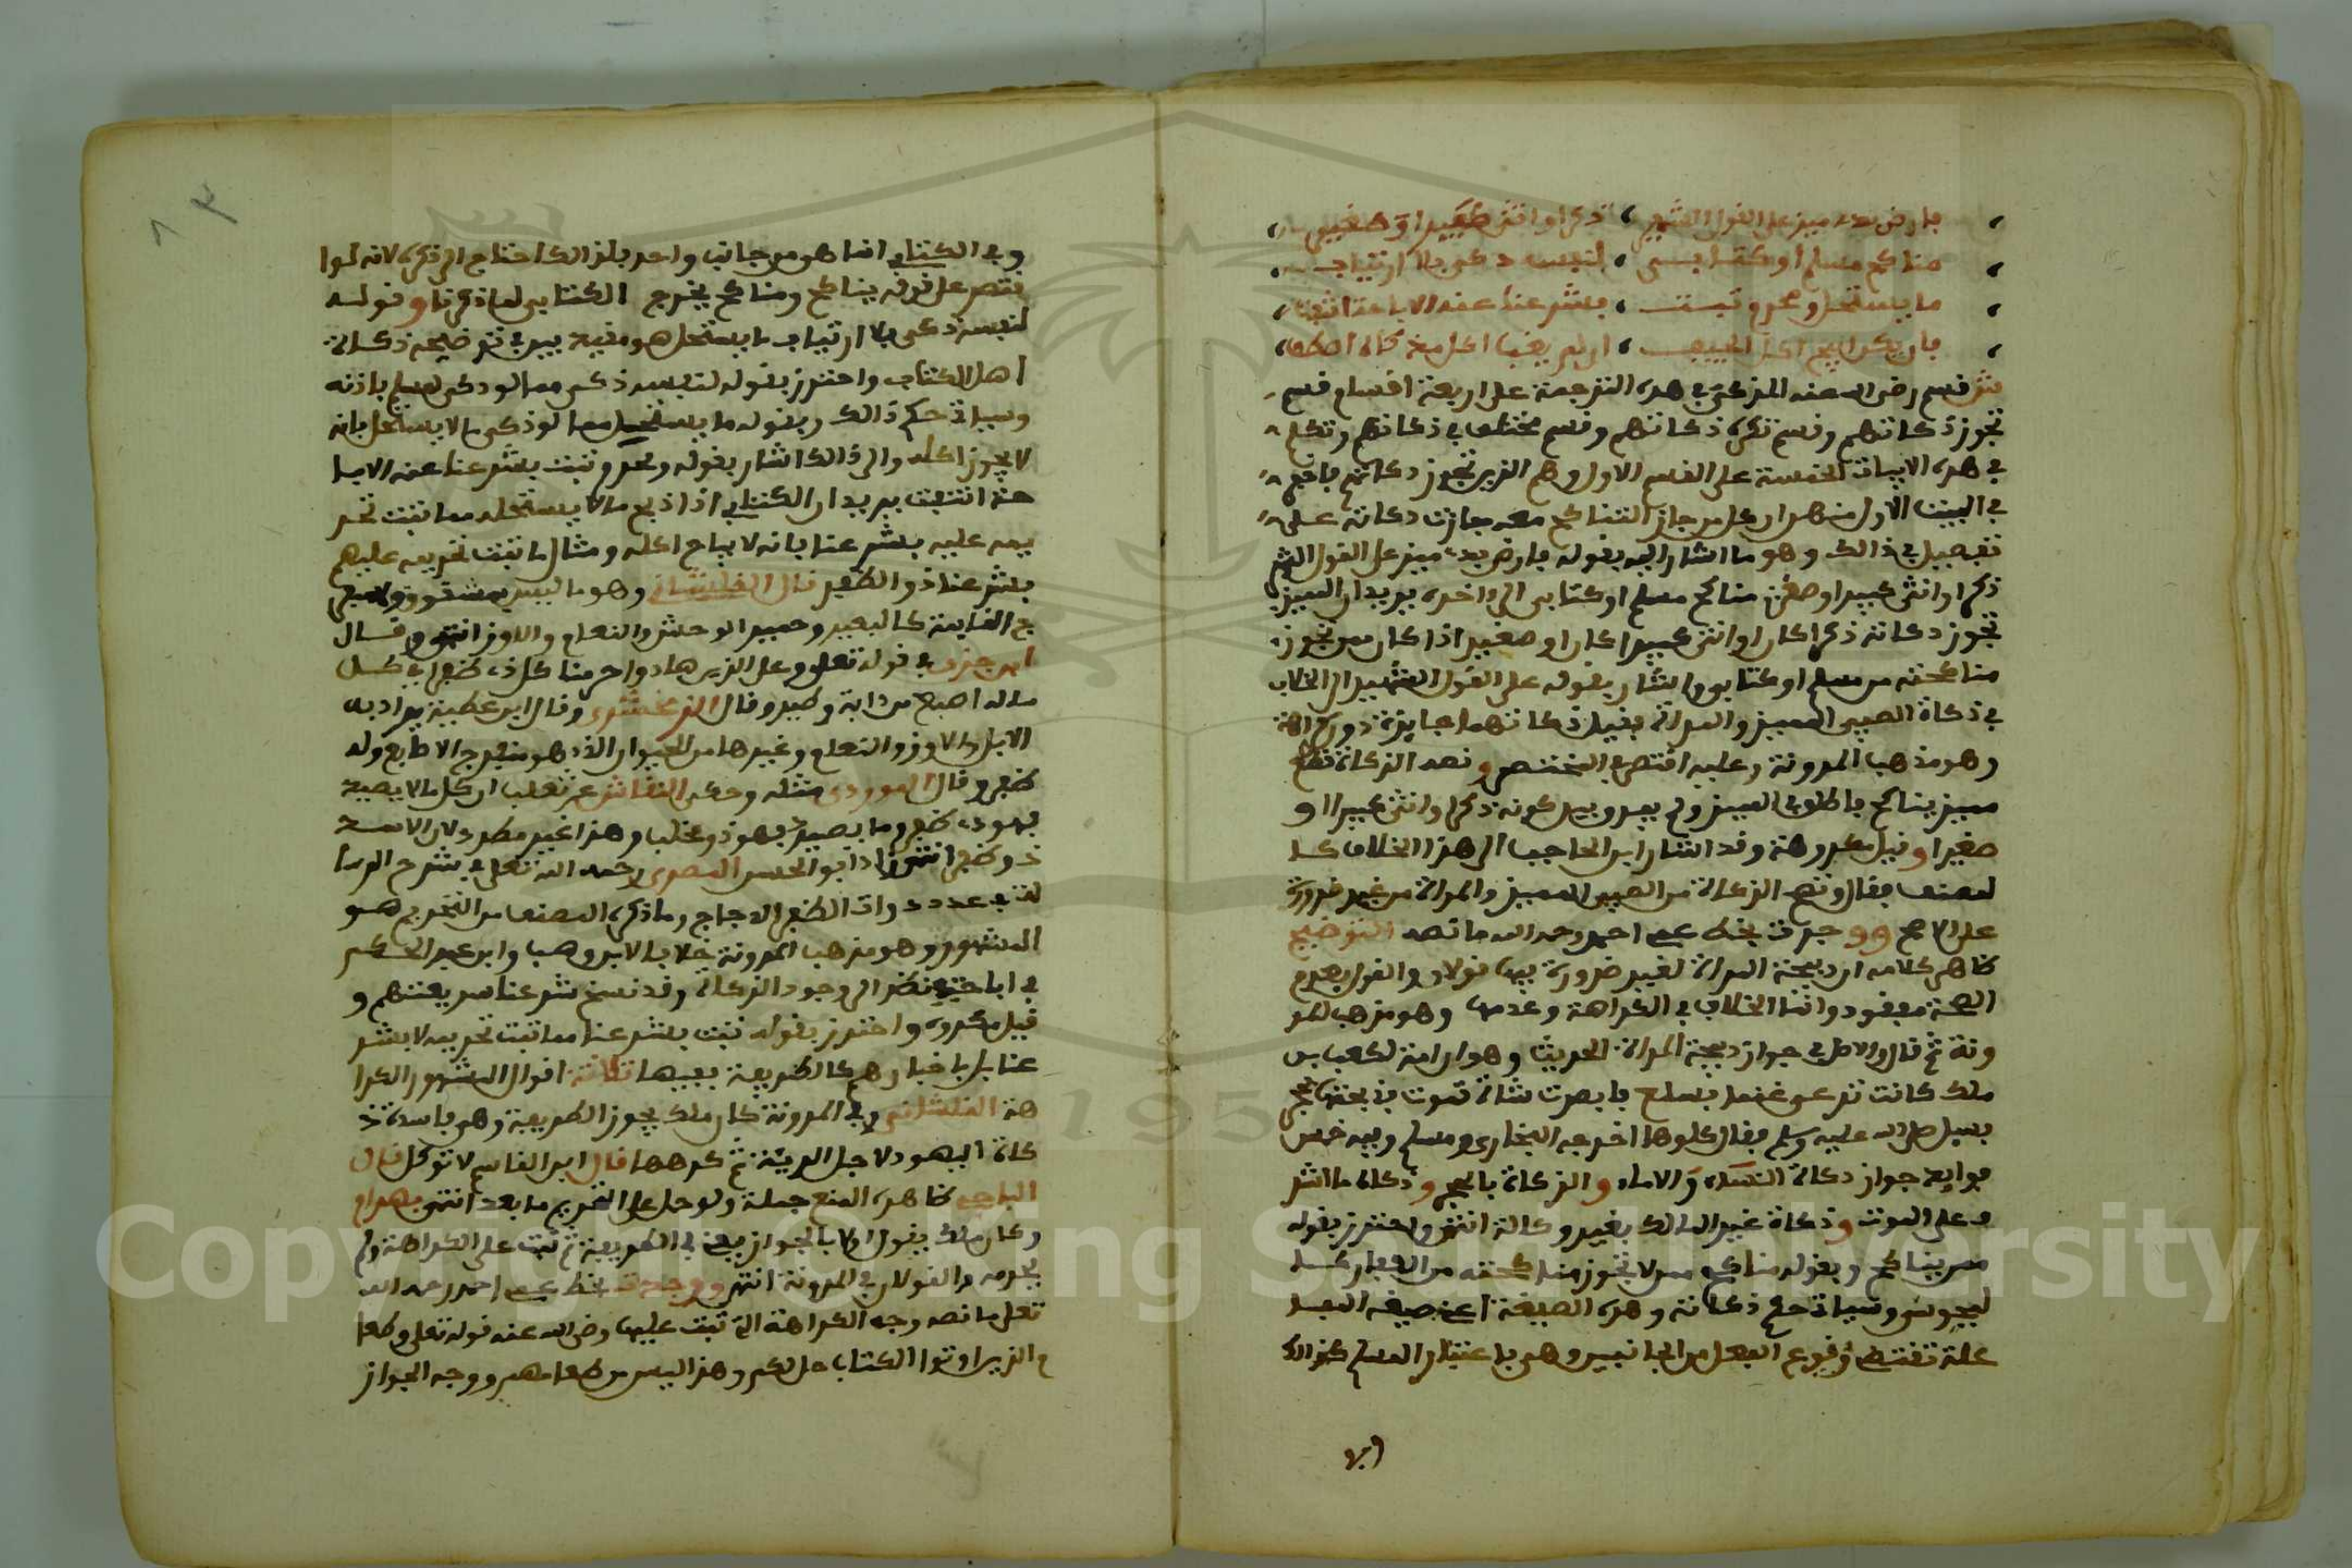 فارض بذبح مميز على القول الشهير ، ذكرا او انثى كبيرا او صغير
مناكح مسلم او كتابي ، لنفسه ذكى بلا ارتياب
ما يستحل ومحرم ثبت ، بشرعنا عنه الاباحة انتفت
فان يكن ابيح اكل الميت ، ان لم يغب
ش قسم رضي الله عنه المزكى في هذه الترجمة على اربعة اقسام قسم
تجوز ذكاتهم وقسم تكره ذكاتهم وقسم مختلف في ذكاتهم وتكلم
في هذه الابيات الخمسة على القسم الاول وهم الذين تجوز ذكاتهم فاخبر
في البيت الاول منها ان كل من جاز التناكح معه جازت ذكاته على
تفصيل في ذالك وهو ما اشار اليه بقوله فارض بذبح مميز على القول الشهير
ذكرا او انثى كبيرا او صغير مناكح مسلم او كتابي الى اخره يريد ان المميز
تجوز ذكاته ذكرا كان او انثى كبيرا كان او صغيرا اذا كان ممن تجوز
مناكحته من مسلم او كتابي واشار بقوله على القول الشهير الى الخلاف
في ذكاة الصبي المميز والمراة فقيل ذكاتهما جايزة دون كراهة
وهو مذهب المدونة وعليه اقتصر في المختصر ونصه الزكاة قطع
مميز يناكح فاطلق في المميز ولم يفرق بين كونه ذكرا وانثى كبيرا او
صغيرا وقيل مكروهة وقد اشار ابن الحاجب الى هذا الخلاف كـ
لمصنف فقال وتصح الزكاة من الصبي المميز والمراة من غير ضرورة
على الاصح ووجدت بخط عم احمد رحمه الله ما نصه التوضيح
ظاهر كلامه ان ذبيحة المراة لغير ضرورة فيها قولان والقول بعدم
الصحة مفقود وانما الخلاف في الكراهة وعدمها وهو مذهب المد
ونة ثم قال والاصل في جواز ذبيحة المراة الحديث وهو ان امة لكعب بن
ملك كانت ترعى غنما بسلع فابصرت شاة تموت فذبحتها بحجر
فسيل صلى الله عليه وسلم فقال كلوها اخرجه البخاري ومسلم وفيه خمس
فوايد جواز ذكاة النساء والاماء والزكاة بالحجر وذكاة ما اشر
ف على الموت وذكاة غير المالك بغير وكالة انتهى واحترز بقوله
ممن يناكح وبقوله مناكح ممن لا تجوز مناكحته من الكفار كـ
لمجوس وسياتي حكم ذكاته وهذه الصيغة اعني صيغة المفا
علة تقتضي وقوع الفعل من الجانبين وهو باعتبار المسلم كذالك
وفي الكتابي انما هو من جانب واحد فلذالك احتاج الى ذكره لانه لوا
قتصر على قوله يناكح ومناكح يخرج الكتابي لما ذكرنا وقوله
لنفسه ذكى بلا ارتياب ما يستحل هو مفيد بين في توضيحه ذكاة
اهل الكتاب واحترز بقوله لنفسه ذكى مما لو ذكى لمسلم باذنه
وسياتي حكم ذالك وبقوله ما يستحل مما لو ذكى ما لا يستحل فانه
لا يجوز اكله والى ذالك اشار بقوله ومحرم ثبت بشرعنا عنه الابا
حة انتفت يريد ان الكتابي اذا ذبح ما لا يستحله مما ثبت تحر
يمه عليه بشرعنا فانه لا يباح اكله ومثال ما ثبت تحريمه عليهم
بشرعنا ذو الظفر قال القلشاني وهو ما ليس بمشقوق ولا منفر
ج القايمة كالبعير وحمير الوحش والنعام والاوز انتهى وقال
ابن جزي في قوله تعلى وعلى الذين هادوا حرمنا كل ذي ظفر اي كل
ما له اصبع من دابة وطير وقال الزمخشري وقال ابن عطية يراد به
الابل والاوز والنعام وغيرها من الحيوان الذي هو منفرج الاصابع وله
ظفر وقال الموردي مثله وحكى النقاش عن ثعلب ان كل ما لا يصيد
فهو ذي ظفر وما يصيد فهو ذو مخلب وهذا غير مطرد لان الاسد
ذو ظفر انتهى زاد ابو الحسن المصري رحمه الله تعلى في شرح الرسا
لة في عدد ذوات الظفر الدجاج وما ذكره المصنف من التحريم هو
المشهور وهو مذهب المدونة خلافا لابن وهب وابن عبد الحكم
في اباحته نظر الى وجود الزكاة وقد نسخ شرعنا شريعتهم و
قيل مكروه واحترز بقوله ثبت بشرعنا مما ثبت تحريمه لا بشر
عنا بل باخبارهم كالطريفة ففيها ثلاثة اقوال المشهور الكرا
هة القلشاني وفي المدونة كان ملك يجوز الطريفة وهي فاسدة ذ
كاة اليهود لاجل الرية ثم كرهها قال ابن القاسم لا توكل قال
الباجي ظاهره المنع جملة ولو حمل على التحريم ما بعد انتهى بهرام
وكان ملك يقول اولا بالجواز يعني في الطريفة ثم ثبت على الكراهة ولم
يحرمه والقولان في المدونة انتهى ووجدت بخط عم احمد رحمه الله
تعلى ما نصه وجه الكراهة التي ثبت عليها رضي الله عنه قوله تعلى وطعا
م الذين اوتوا الكتاب حل لكم وهذا ليس من طعامهم ووجه الجواز
Copyright © King Saud University
195